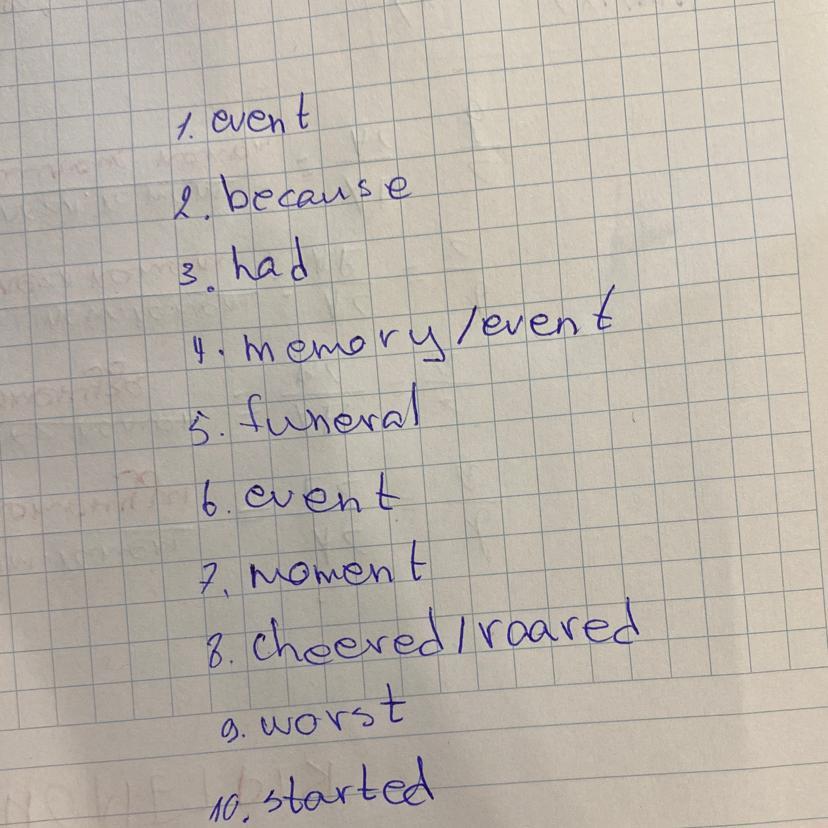 1. event
2. because
3. had
4. memory/event
5. funeral
6. event
7. moment
8. cheered/roared
9. worst
10. started